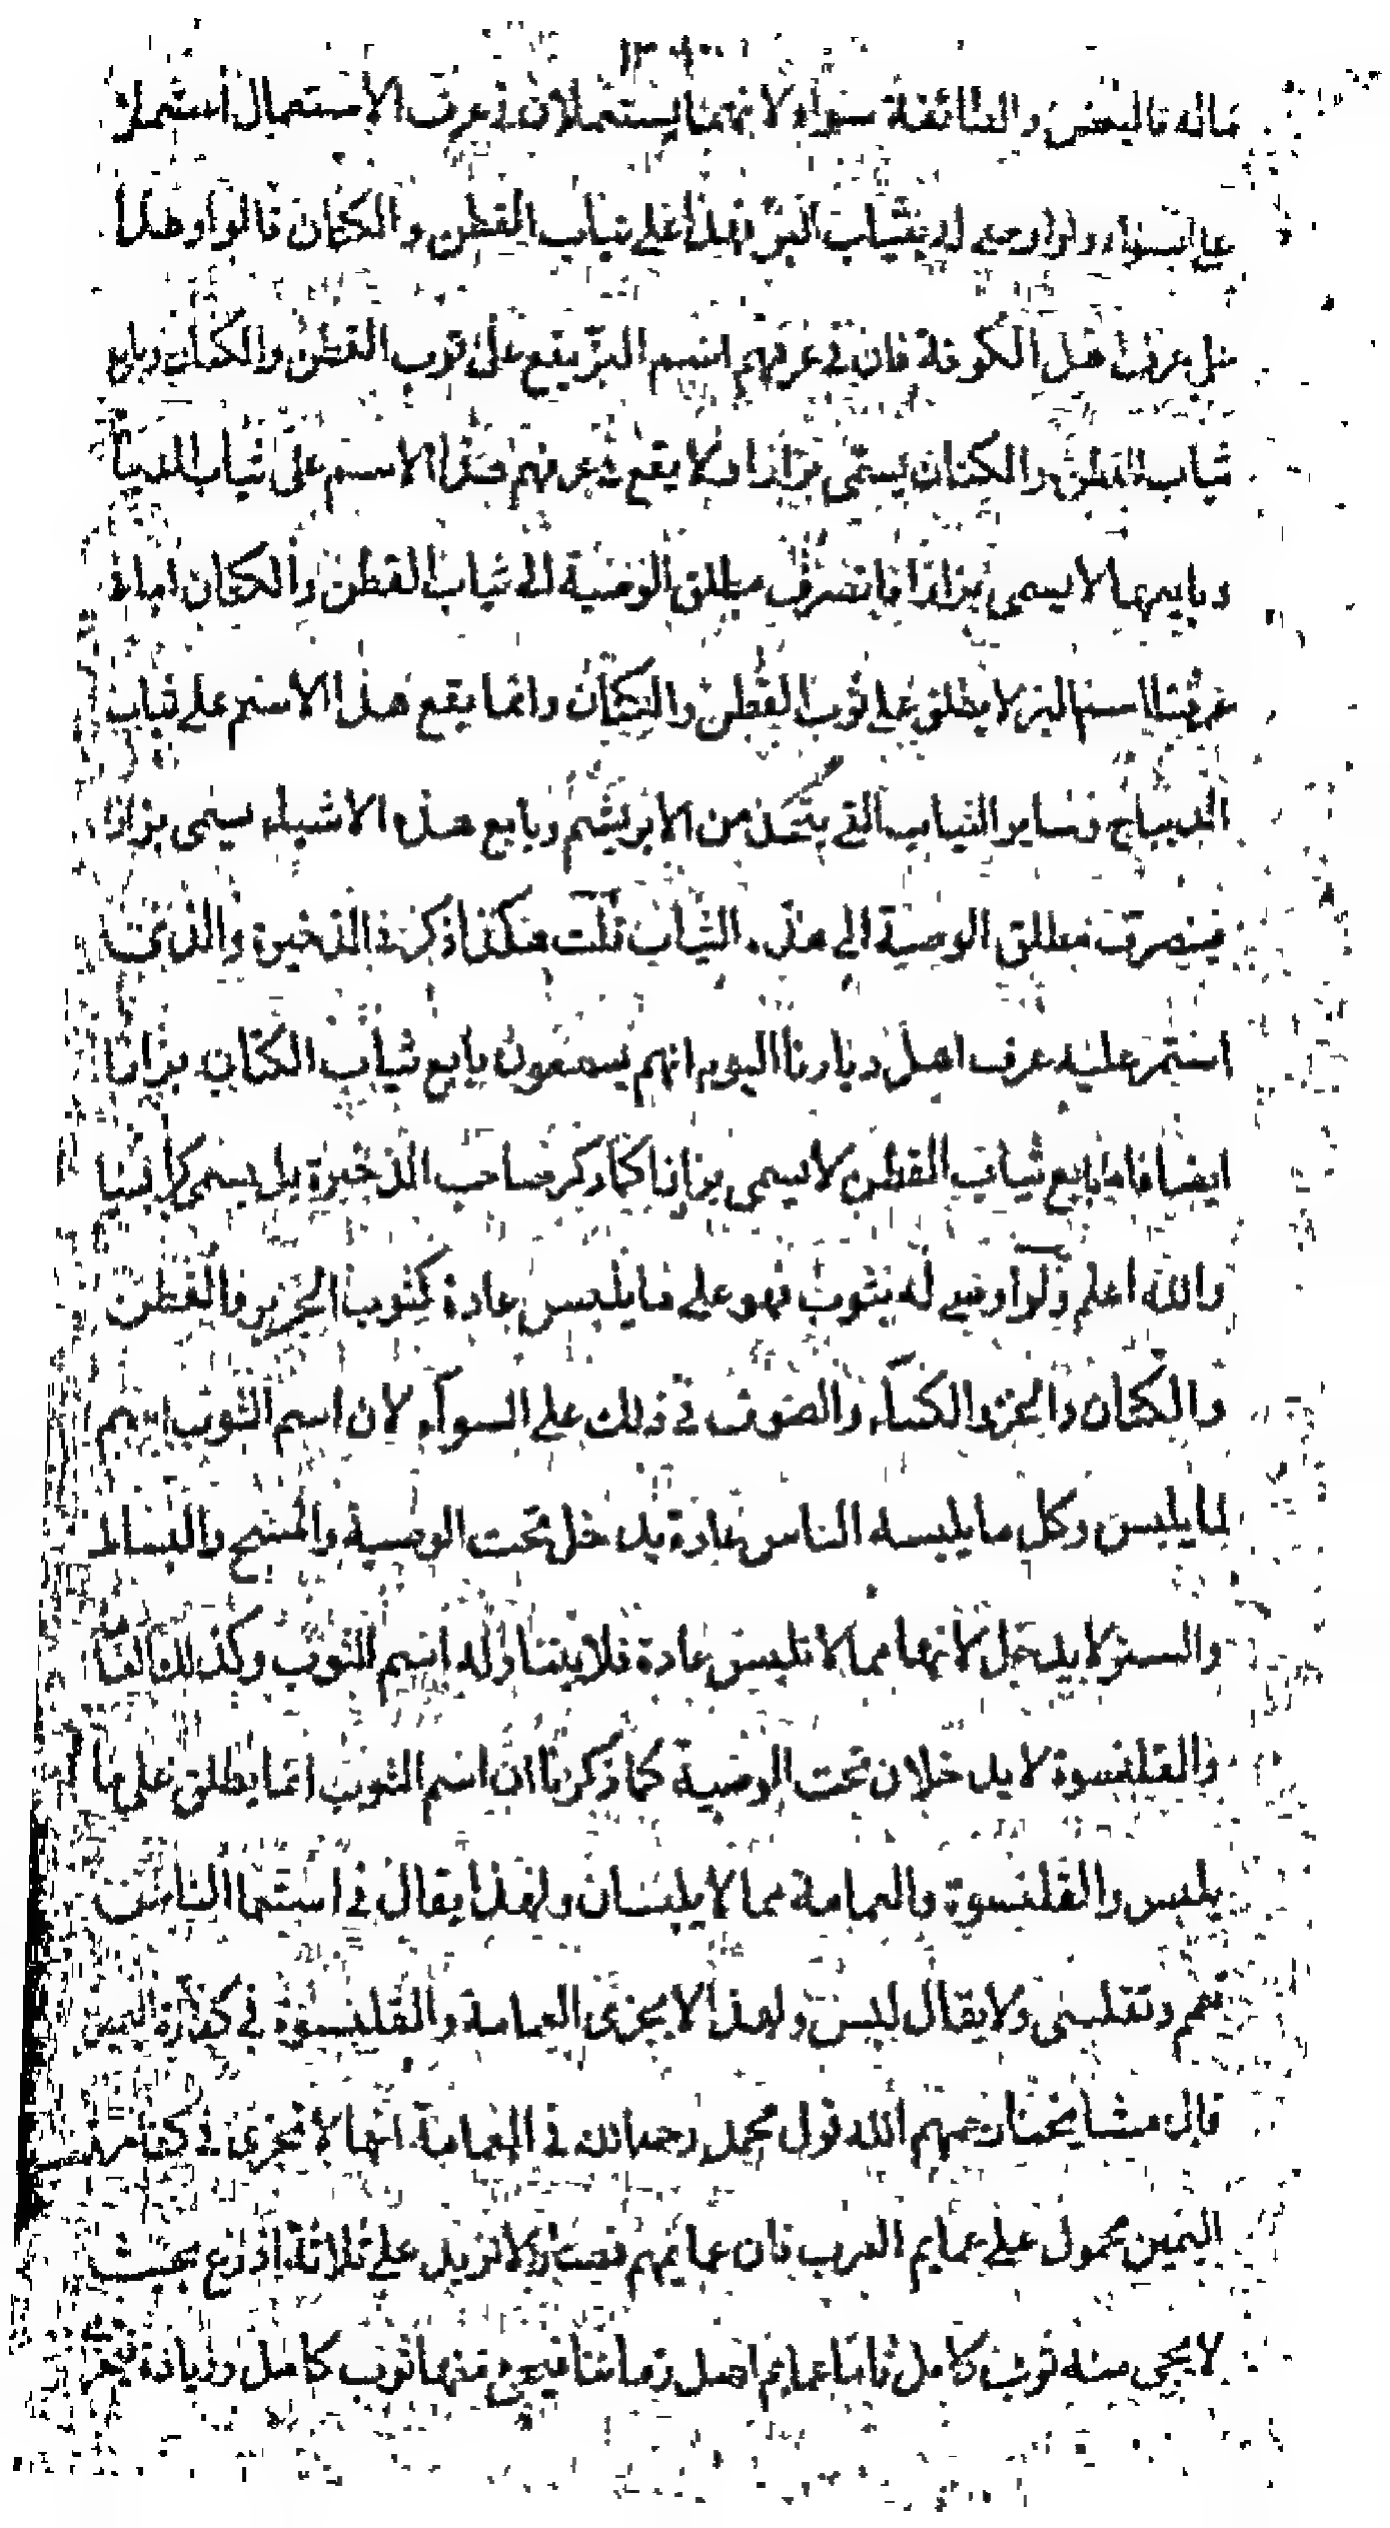 ماله فالبعض والطائفة سواء لانهما يستعملان في عرف الاستعمال استعمالا
على السواء ولو اوصى له بثياب البز فهذا على ثياب القطن والكتان قالوا وهذا
على عرف اهل الكوفة فان في عرفهم اسم البز يقع على ثوب القطن والكتان وبايع
ثياب القطن والكتان يسمى بزازا ولا يقع في عرفهم هذا الاسم على ثياب
وبايعها لا يسمى بزازا فانصرف مطلق الوصية الى ثياب القطن والكتان اما في
عرفنا اسم البز لا يطلق على ثوب القطن والكتان وانما يقع هذا الاسم على ثياب
الديباج وساير الثياب التي يتخذ من الابريشم وبايع هذه الاشياء يسمى بزازا
فينصرف مطلق الوصية الى هذه الثياب قلت هكذا ذكر في الذخيرة والذي
استمر عليه عرف اهل ديارنا اليوم انهم يسمون بايع ثياب الكتان بزازا
ايضا فاما بايع ثياب القطن لا يسمى بزازا كما ذكر صاحب الذخيرة بل يسمى كرابيسيا
والله اعلم ولو اوصى له بثوب فهو على ما يلبس عادة كثوب الحرير والقطن
والكتان والخز والكساء والصوف في ذلك على السواء لان اسم الثوب اسم
لما يلبس وكل ما يلبسه الناس عادة يدخل تحت الوصية والمسح والبساط
والستر لا يدخل لانها مما لا تلبس عادة فلا يتناوله اسم الثوب وكذلك العمامة
والقلنسوة لا يدخلان تحت الوصية كما ذكرنا ان اسم الثوب انما يطلق على ما
يلبس والقلنسوة والعمامة مما لا يلبسان ولهذا يقال في الناس
تعمم وتقلنس ولا يقال لبس ولهذا لا يجزي العمامة والقلنسوة في كفارة اليمين
قال مشايخنا رحمهم الله قول محمد رحمه الله في العمامة انها لا تجزي في كفارة
اليمين محمول على عمايم العرب فان عمايمهم قصار لا تزيد على ثلاثة اذرع بحيث
لا يجئ منه ثوب كامل فاما عمايم اهل زماننا فيجئ منها ثوب كامل وزيادة